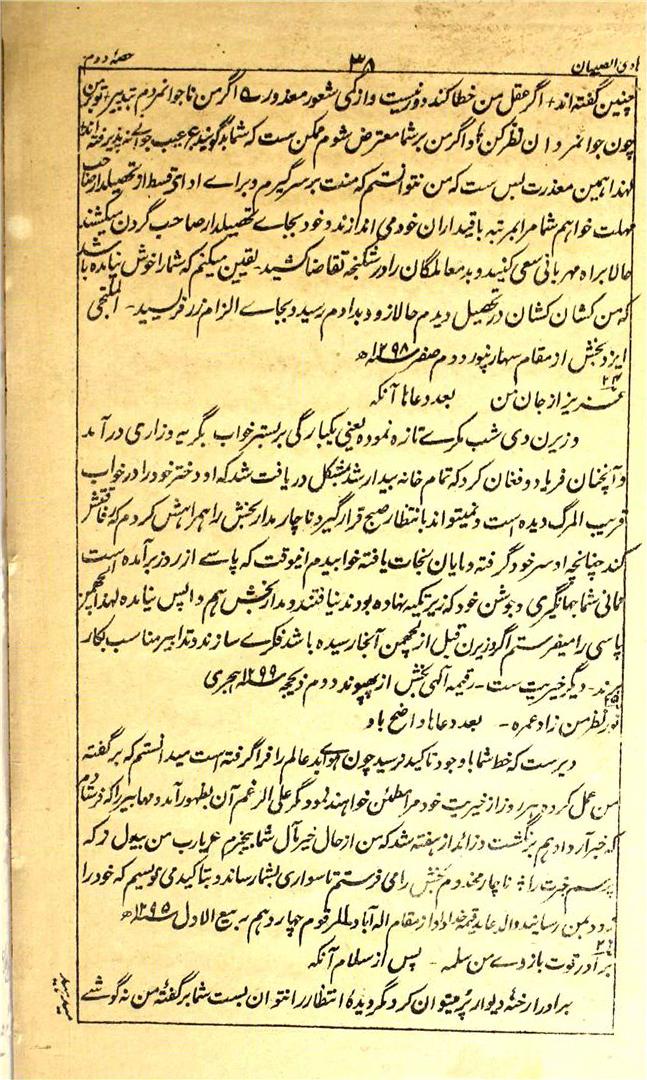 ہادی الصبیان ۳۸ حصۂ دوم
چنین گفته اند + اگر عقل من خطا کند دور نیست و از کمی شعور معذورے اگر من ناجوانمردم تدبیر + تو بمن
چون جوانمردان نظر کن و اگر من بر شما معترض شوم ممکن ست که شما بد گویند ع عیب جواے نه پذیرفته اند
لهذا همین معذرت بس ست که من نتوانستم که منت بر سر گیرم و براے اداے قسط از تحصیلدار صاحب
مهلت خواهم شما مرا بمرتبه باقیداران خود می اندازند و خود بجاے تحصیلدار صاحب گردن میکشند
حالا براه مهربانی سعی کنید و بد معاملگان را در شکنجه تقاضا کشید۔ یقین میکنم که شما را خوش نیامده باشد
که من کشان کشان در تحصیل دیدم حالا زود بدادم رسید و بجاے الزام زر فرسید۔ الملتجی
ایزد بخش از مقام سهارنپور دوم صفر ۱۲۹۸ھ
۲۴
عزیز از جان من بعد دعاها آنکه
وزیرن دی شب مکرے تازه نموده یعنی یکبارگی بر بستر خواب بگریه و زاری در آمد
و آنچنان فریاد و فغان کرد که تمام خانه بیدار شد بمشکل دریافت شد که او دختر خود را در خواب
قریب المرگ دیده است و نمیتواند بانتظار صبح قرار گیرد ناچار مدار بخش را همراهش کردم که رفاقتش
کند چنانچه او سر خود گرفته و مایان نجات یافته خوابیدیم اینوقت که پاسے از روز برآمده است
ممانی شما جهانگیری و جوشن خود که زیر تکیه نهاده بودند نیافتند و مدار بخش هم واپس نیامده لهذا لچھمن
پاسی را میفرستم اگر وزیرن قبل از لچھمن آنجا رسیده باشد فکرے سازند و تدابیر مناسب بکار
برند۔ دیگر خیریت ست۔ رقیمه الٰهی بخش از پھپوند دوم ذیحجه ۱۲۹۹ هجری
۲۵
نور نظر من زاد عمره۔ بعد دعاها واضح باد
دیرست که خط شما با وجود تاکید نرسید چون هواے بد عالم را فرا گرفته است میدانستم که بر گفته
من عمل کرده هر روز از خیریت خود مرا مطمئن خواهند نمود مگر علی الرغم آن بظهور آمد و مهابیر را که فرستادم
که خبر آرد او هم برنگشت و زائد از هفته شد که من از حال خیر مآل شما بیخبرم ع یارب من بیدل ز که
پرسم خبرت را + ناچار مخدوم بخش را می فرستم تا سواری بشما رساند و بتاکید می نویسم که خود را
زود بمن رسانند والدعا رقیمه خداداد از مقام اله آباد المرقوم چهاردهم ربیع الاول ۱۲۹۵ھ
۲۶
برادر قوت بازوے من سلمه۔ پس از سلام آنکه
برادر رخنهٔ دیوار پُر میتوان کرد مگر دیدهٔ انتظار را نتوان بست شما بر گفتهٔ من نه گوشے